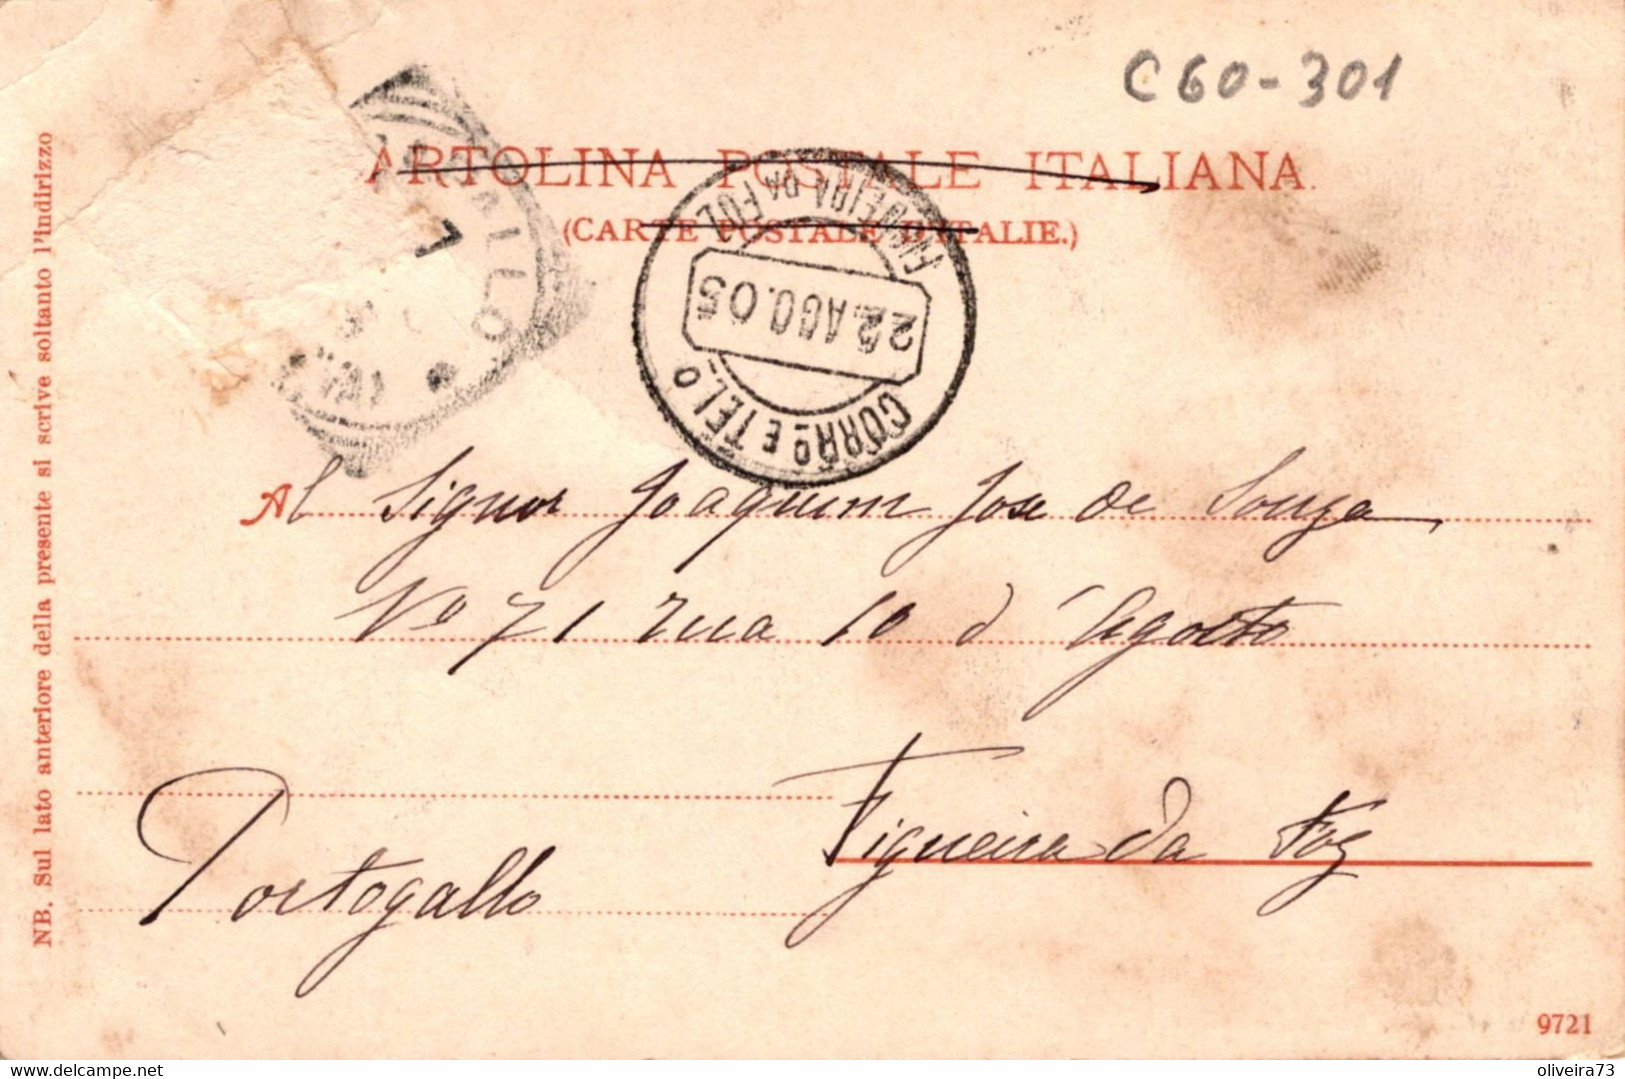 C60-301
ARTOLINA POSTALE ITALIANA.
(CARTE POSTALE D'ITALIE.)
FIGUEIRA DA FOZ
22.AGO.05
CORRº E TELº
Al Signor Joaquim Jose de Souza
Nº 71 rua 10 d'Agosto
Figueira da Foz
Portogallo
NB. Sul lato anteriore della presente si scrive soltanto l'Indirizzo
9721
delcampe.net
oliveira73